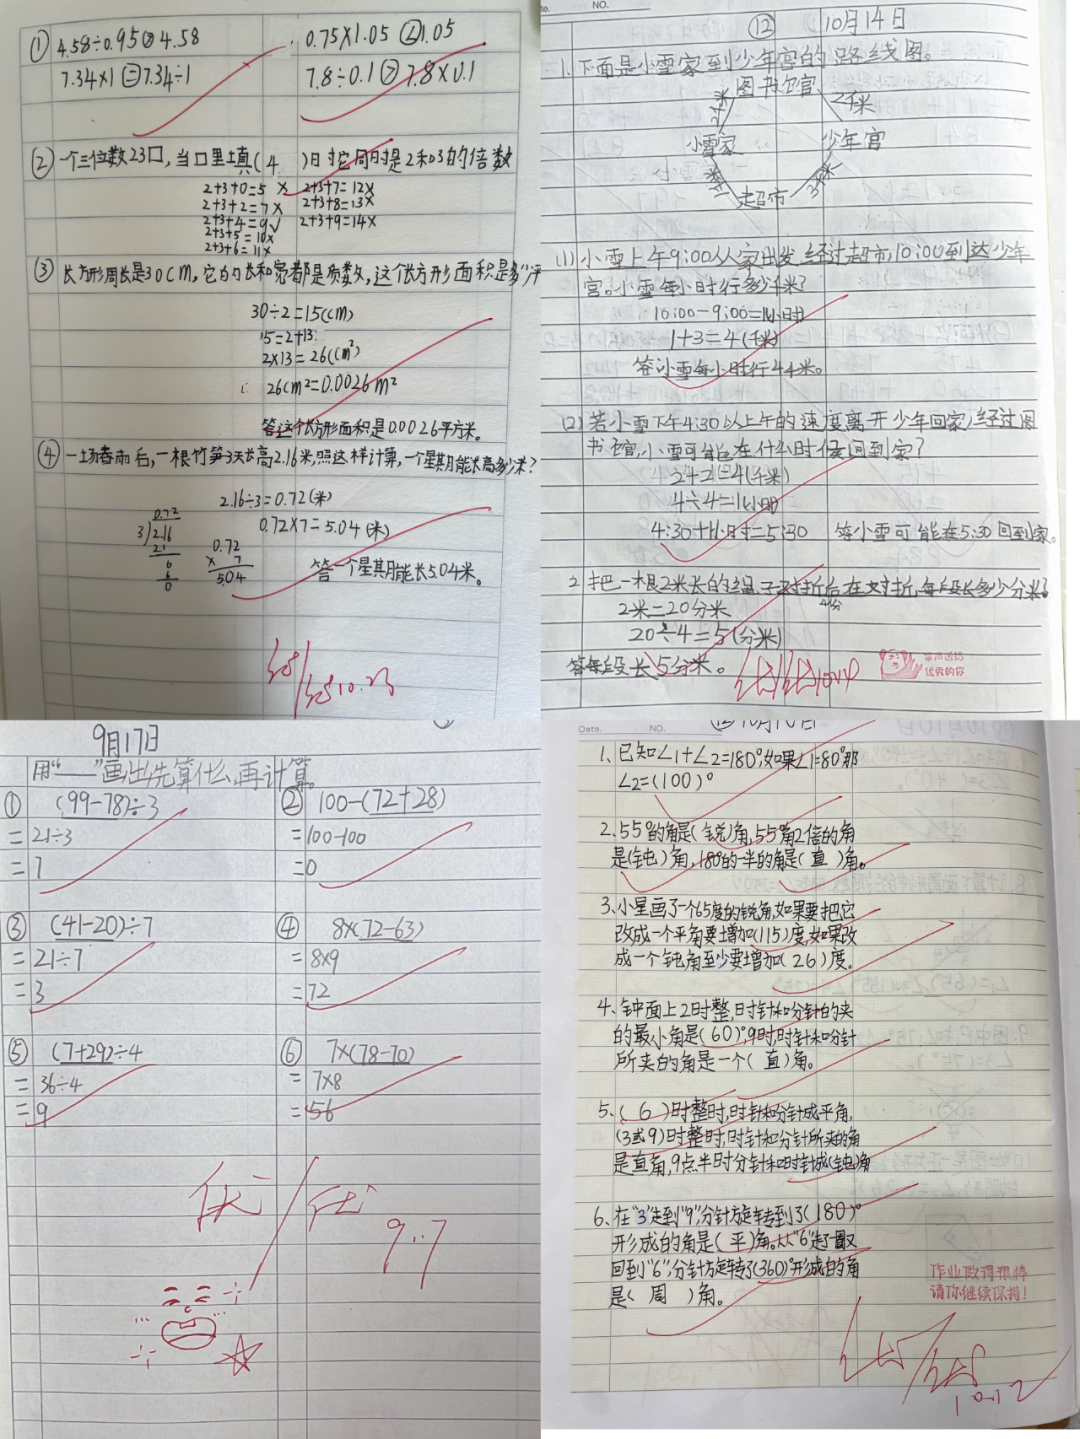 ① 4.58÷0.95>4.58 0.75×1.05<1.05
7.34×1=7.34÷1 7.8÷0.1>7.8×0.1
② 一个三位数23口,当口里填(4 )时它同时是2和3的倍数
2+3+0=5 × 2+3+7=12×
2+3+2=7× 2+3+8=13×
2+3+4=9√ 2+3+9=14×
2+3+5=10×
2+3+6=11×
③ 长方形周长是30cm,它的长和宽都是质数,这个长方形面积是多少平
30÷2=15(cm)
15=2+13
2×13=26(cm²)
26cm²=0.0026m²
答这个长方形面积是0.0026平方米。
④ 一场春雨后,一根竹笋3天长高2.16米,照这样计算,一个星期能长高多少米?
2.16÷3=0.72(米)
0.72×7=5.04(米)
0.72
3 2.16
21
6
6
0
0.72
× 7
5.04
答一个星期能长5.04米。
优/优10.23
NO.
⑫ 10月14日
1.下面是小雪家到少年宫的路线图。
图书馆 2千米
2千米
小雪家 少年宫
超市 3千米
(1)小雪上午9:00从家出发,经过超市,10:00到达少年
宫。小雪每小时行多少千米?
10:00-9:00=1小时
1+3=4(千米)
答小雪每小时行4千米。
(2)若小雪下午4:30以上午的速度离开少年回家,经过图
书馆,小雪可能在什么时候回到家?
2+2=4(千米)
4÷4=1小时
4:30+1小时=5:30 答小雪可能在5:30回到家。
2 把一根2米长的绳子对折后在对折,每段长多少分米?
2米=20分米
20÷4=5(分米)
答每段长5分米。
掌声送给
优秀的你
9月17日
用“——”画出先算什么,再计算。
① (99-78)÷3 ② 100-(72+28)
=21÷3 =100-100
=7 =0
③ (41-20)÷7 ④ 8×(72-63)
=21÷7 =8×9
=3 =72
⑤ (7+29)÷4 ⑥ 7×(78-70)
=36÷4 =7×8
=9 =56
优/优
9.7
Date. NO.
1、已知∠1+∠2=180°,如果∠1=80°那
∠2=(100)°
2、55°的角是(锐)角,55°角2倍的角
是(钝)角,180°的一半的角是(直)角。
3、小星画了一个65度的锐角,如果要把它
改成一个平角要增加(115)度,如果改
成一个钝角至少要增加(26)度。
4、钟面上2时整,时针和分针的夹
的最小角是(60)°,9时,时针和分针
所夹的角是一个(直)角。
5、(6)时整时,时针和分针成平角,
(3或9)时整时,时针和分针所夹的角
是直角,9点半时分针和时针成(钝)角
6、在“3”走到“9”,分针旋转到了(180)°
形成的角是(平)角,从“6”走了一圈又
回到“6”,分针旋转了(360)°形成的角
是(周)角。
作业做得很棒
请你继续保持!
优/优
10.12